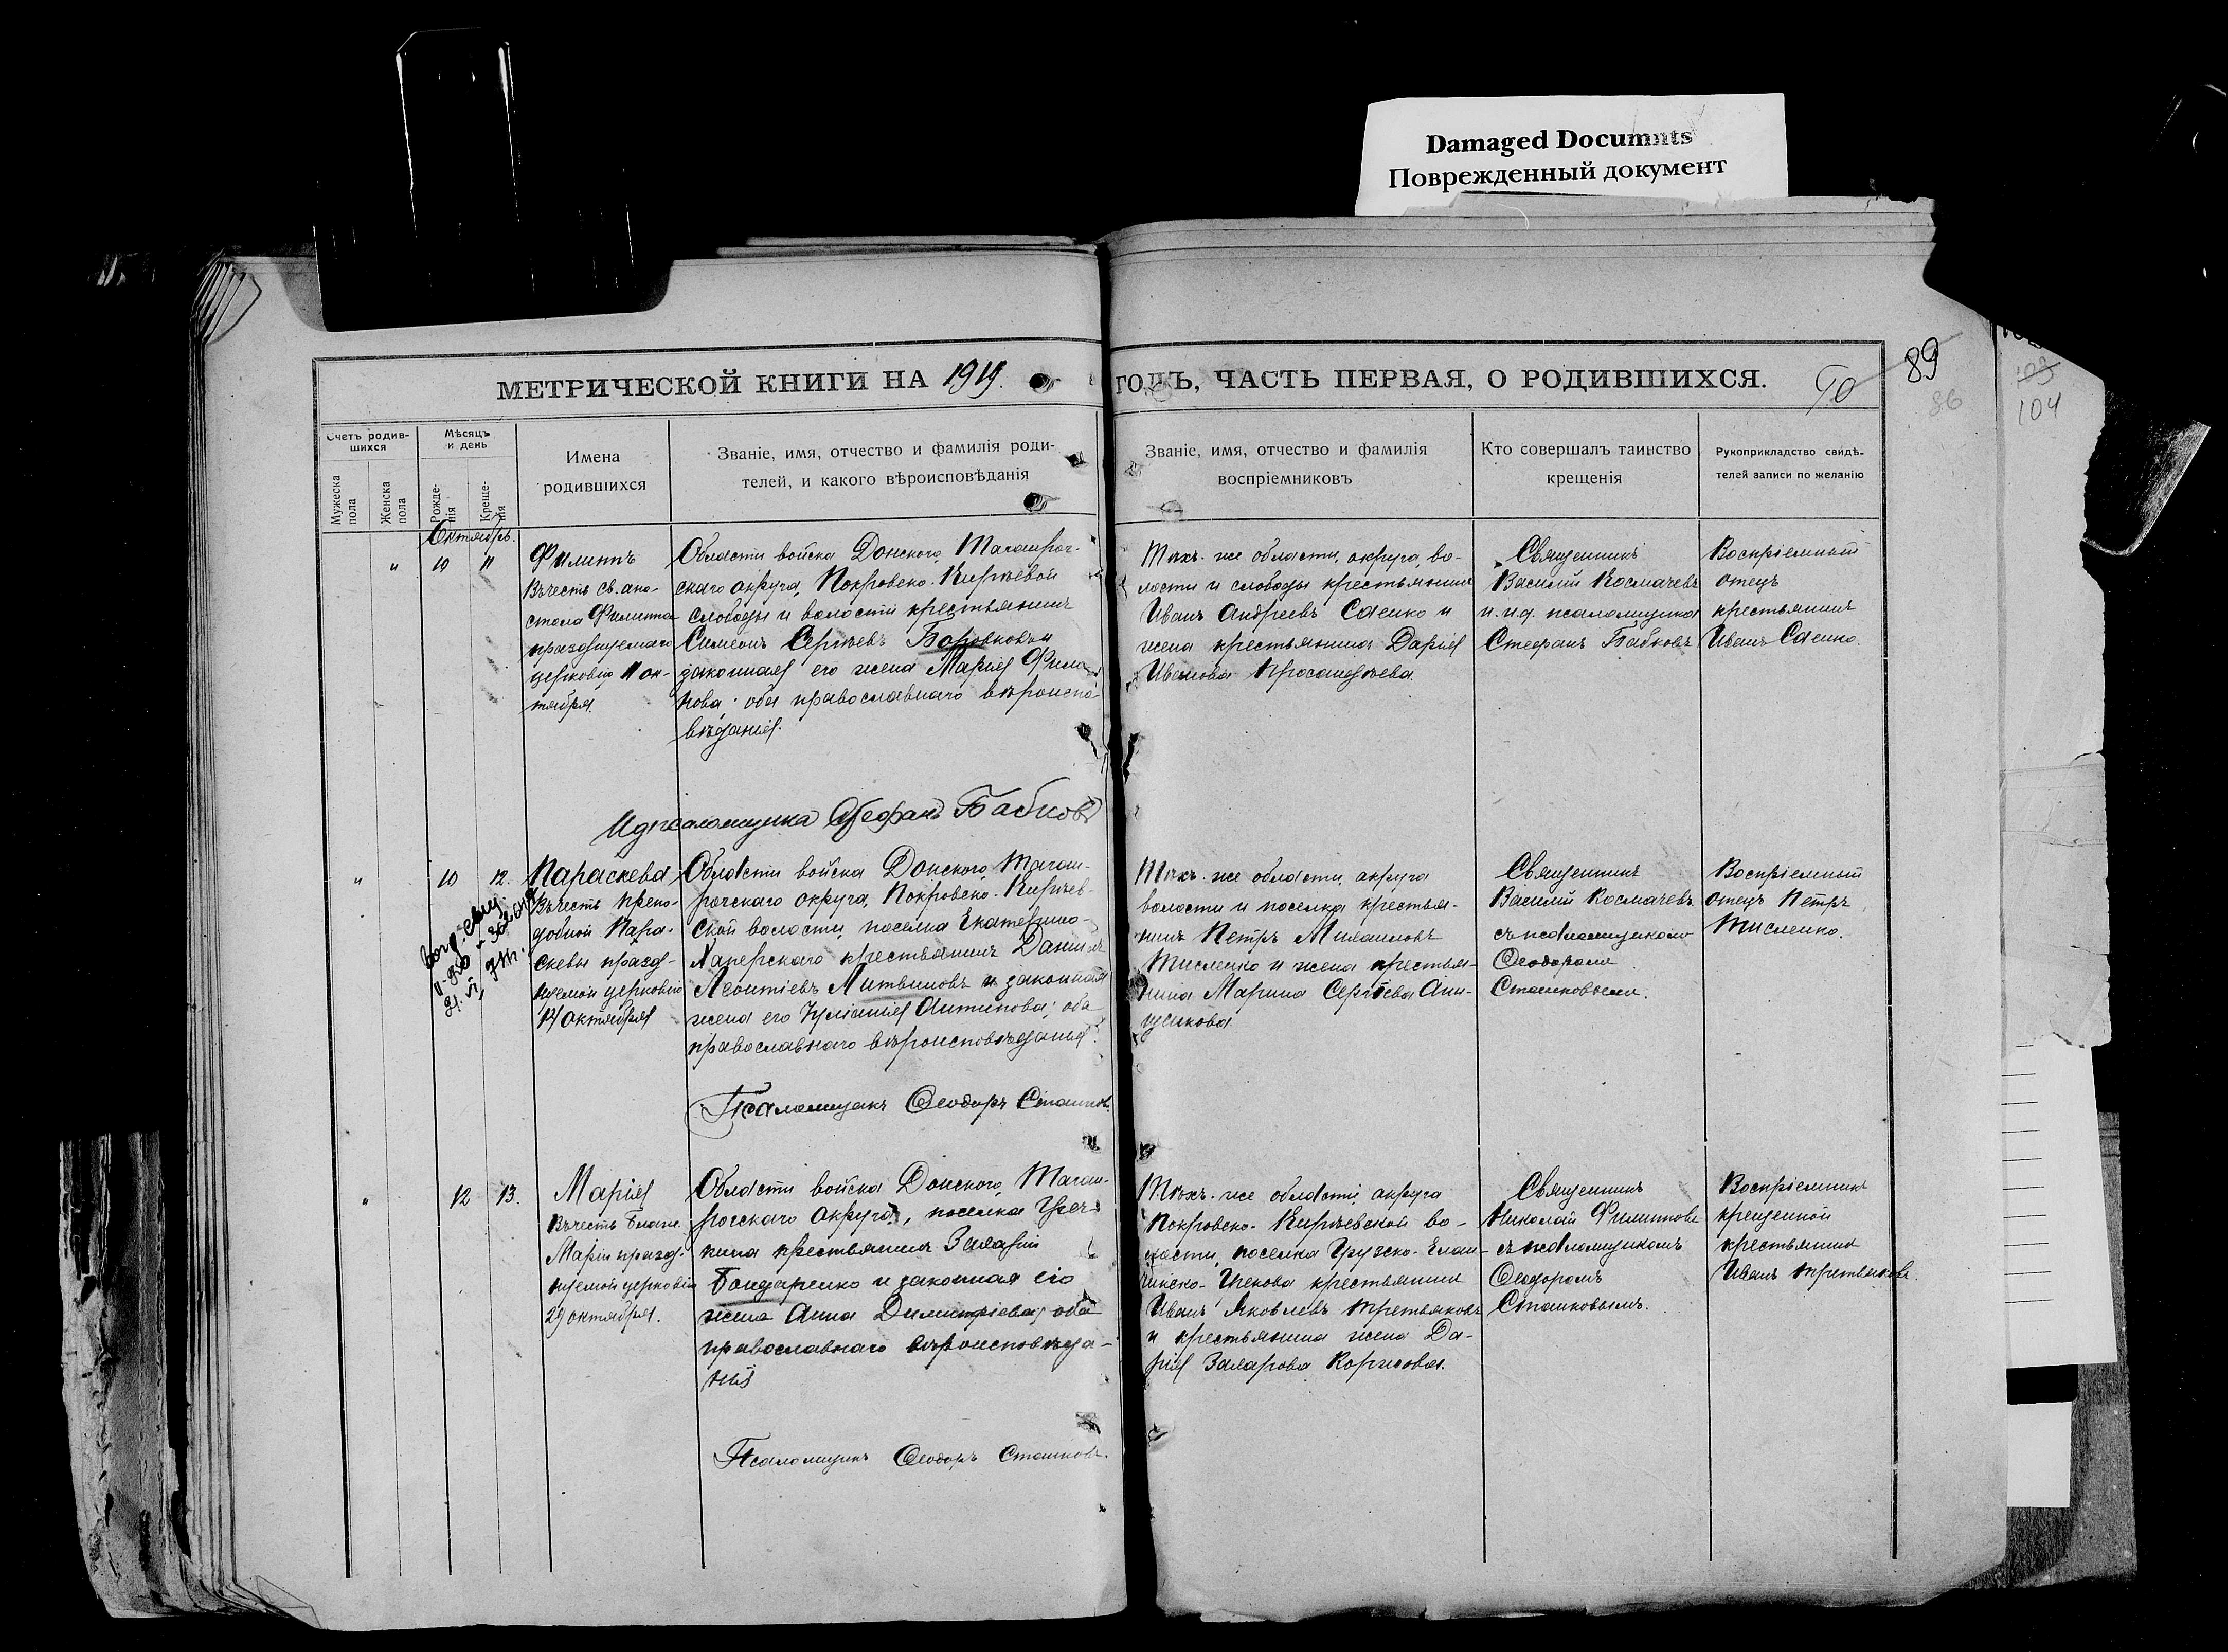 Damaged Documnts
Поврежденный документ
МЕТРИЧЕСКОЙ КНИГИ НА 1919.
ГОДЪ, ЧАСТЬ ПЕРВАЯ, О РОДИВШИХСЯ.
89
86
104
Счетъ родив-
шихся
Мѣсяцъ
и день
Мужеска
пола
Женска
пола
Рожде-
нія
Креще-
нія
Имена
родившихся
Званіе, имя, отчество и фамилія роди-
телей, и какого вѣроисповѣданія
Званіе, имя, отчество и фамилія
воспріемниковъ
Кто совершалъ таинство
крещенія
Рукоприкладство свидѣ-
телей записи по желанію
Октябрь.
10 11
Филиппъ
Въ честь св. апо-
стола Филиппа
празднуемаго
церковію 11 ок-
тября.
Области войска Донского, Таганрог-
скаго округа, Покровско-Кирѣевой
слободы и волости крестьянинъ
Симеонъ Сергѣевъ Боровковъ и
законная его жена Марія
оба православнаго вѣроиспо-
вѣданія.
Тѣхъ-же области, округа, во-
лости и слободы крестьянинъ
Иванъ Андреевъ Саенко и
жена крестьянина Дарія
Иванова
Священникъ
Василій Космачевъ
и. и.д. псаломщика
Стефанъ Бабковъ
Воспріемный
отецъ
крестьянинъ
Иванъ Саенко.
Ид псаломщика Стефанъ Бабковъ
10 12.
Параскева
Въ честь препо-
добной Пара-
скевы празд-
нуемой церковію
14 октября
Области войска Донского, Таган-
рогскаго округа, Покровско-Кирѣев-
ской волости, поселка Екатерино-
Хаперскаго крестьянинъ Даніилъ
Леонтіевъ Литвиновъ и законная
жена его Іуліанія Антипова; оба
православнаго вѣроисповѣданія.
Тѣхъ-же области, округа
волости и поселка крестья-
нинъ Петръ Михаиловъ
Тисленко и жена крестья-
нина Марина Сергѣева
Священникъ
Василій Космачевъ
съ псаломщикомъ
Ѳеодоромъ
Сташковымъ.
Воспріемный
отецъ Петръ
Тисленко.
Псаломщикъ Ѳеодоръ Сташков.
12 13.
Марія
Въ честь Блаж.
Маріи празд-
нуемой церковію
29 октября.
Области войска Донского, Таган-
рогскаго округа, поселка
крестьянинъ Захарій
Бондаренко и законная его
жена Анна Димитріева; оба
православнаго вѣроисповѣда-
нія
Тѣхъ-же области, округа
Покровско-Кирѣевской во-
лости, поселка Грузско-Елан-
чикско- крестьянинъ
Иванъ Яковлевъ Третьяковъ
и крестьянина жена Да-
рія Захарова Коржова.
Священникъ
Николай Филипповъ
съ псаломщикомъ
Ѳеодоромъ
Сташковымъ.
Воспріемникъ
крещенной
крестьянинъ
Иванъ Третьяковъ.
Псаломщикъ Ѳеодоръ Сташковъ.